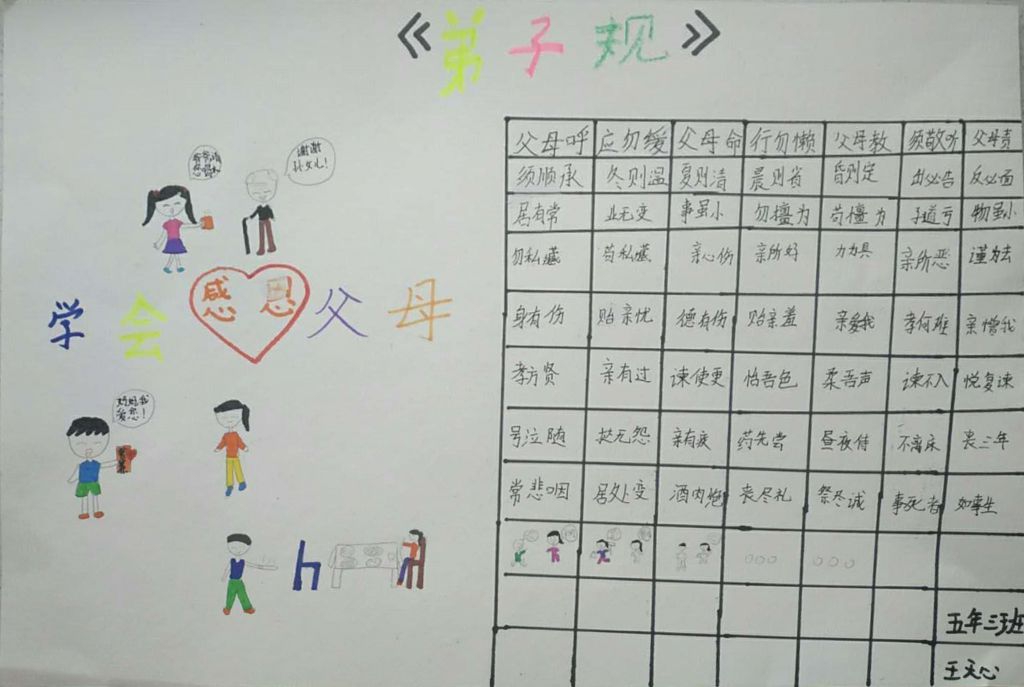 《弟子规》
父母呼 应勿缓 父母命 行勿懒 父母教 须敬听 父母责
须顺承 冬则温 夏则清 晨则省 昏则定 出必告 反必面
居有常 业无变 事虽小 勿擅为 苟擅为 子道亏 物虽小
勿私藏 苟私藏 亲心伤 亲所好 力为具 亲所恶 谨为去
身有伤 贻亲忧 德有伤 贻亲羞 亲爱我 孝何难 亲憎我
孝方贤 亲有过 谏使更 怡吾色 柔吾声 谏不入 悦复谏
号泣随 挞无怨 亲有疾 药先尝 昼夜侍 不离床 丧三年
常悲咽 居处变 酒肉绝 丧尽礼 祭尽诚 事死者 如事生
五年三班
王天心
谢谢
孙女儿!
学会感恩父母
妈妈我
爱您!